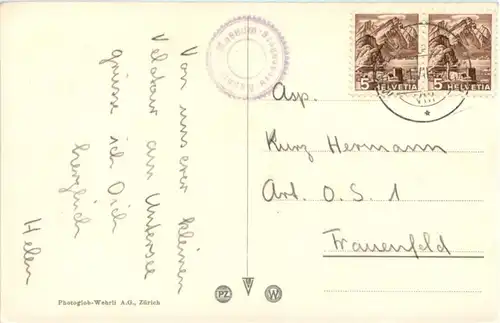 Von unserer kleinen
Velotour am Untersee
grüsse ich Dich
herzlich
Helen
Photoglob-Wehrli A.G., Zürich
PZ
W
5 HELVETIA
5 HELVETIA
Asp.
Kurz Hermann
Art. O.S. 1
Frauenfeld